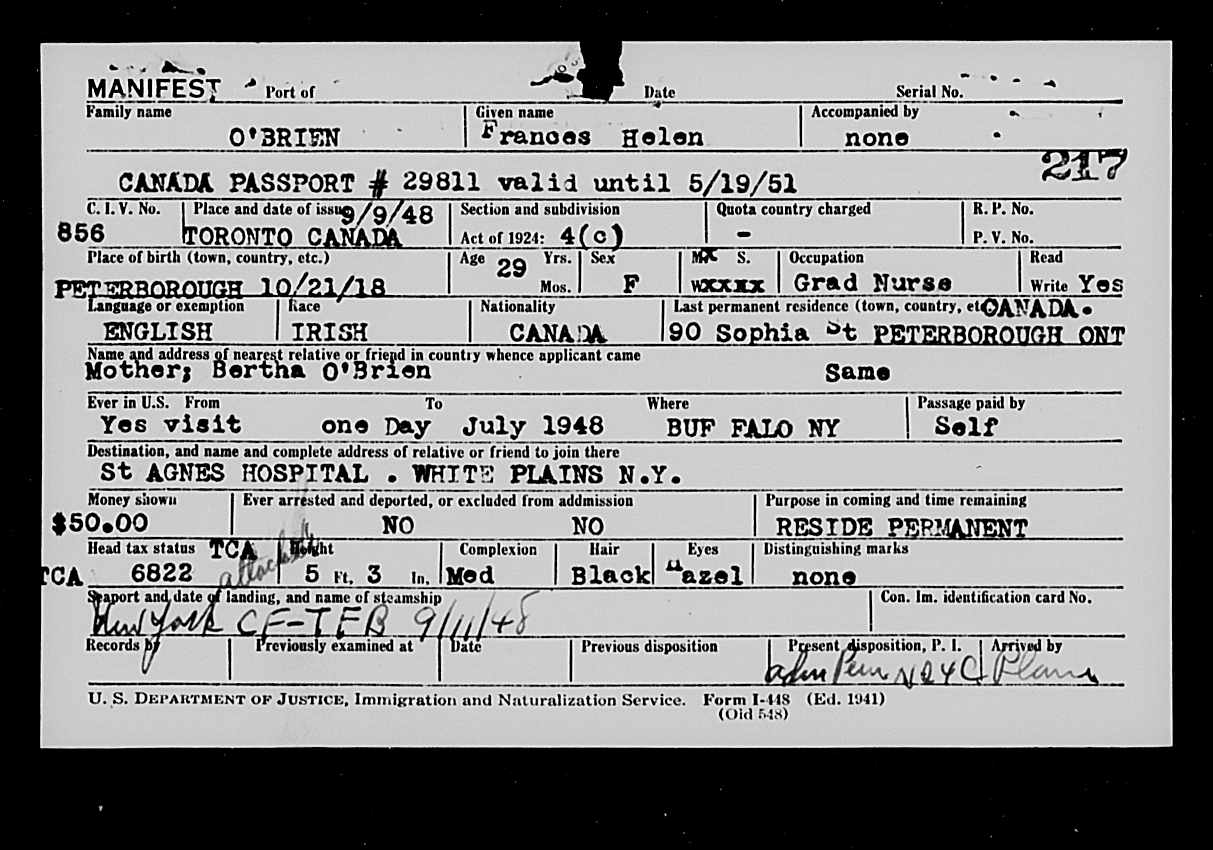 MANIFEST Port of Date Serial No.
Family name Given name Accompanied by
O'BRIEN Frances Helen none
217
CANADA PASSPORT # 29811 valid until 5/19/51
C. I. V. No. Place and date of issue 9/9/48 Section and subdivision Quota country charged R. P. No.
856 TORONTO CANADA Act of 1924: 4(c) - P. V. No.
Place of birth (town, country, etc.) Age 29 Yrs. Sex M S. Occupation Read
PETERBOROUGH 10/21/18 Mos. F WXXXX Grad Nurse Write Yes
Language or exemption Race Nationality Last permanent residence (town, country, etc CANADA.
ENGLISH IRISH CANADA 90 Sophia St PETERBOROUGH ONT
Name and address of nearest relative or friend in country whence applicant came
Mother; Bertha O'Brien Same
Ever in U.S. From To Where Passage paid by
Yes visit one Day July 1948 BUF FALO NY Self
Destination, and name and complete address of relative or friend to join there
St AGNES HOSPITAL . WHITE PLAINS N.Y.
Money shown Ever arrested and deported, or excluded from addmission Purpose in coming and time remaining
$50.00 NO NO RESIDE PERMANENT
Head tax status TCA Height Complexion Hair Eyes Distinguishing marks
TCA 6822 attached 5 Ft. 3 In. Med Black Hazel none
Seaport and date of landing, and name of steamship Con. Im. identification card No.
New York CF-TFB 9/11/48
Records by Previously examined at Date Previous disposition Present disposition, P. I. Arrived by
adm Perm Plane
U. S. DEPARTMENT OF JUSTICE, Immigration and Naturalization Service. Form I-448 (Ed. 1941)
(Old 548)